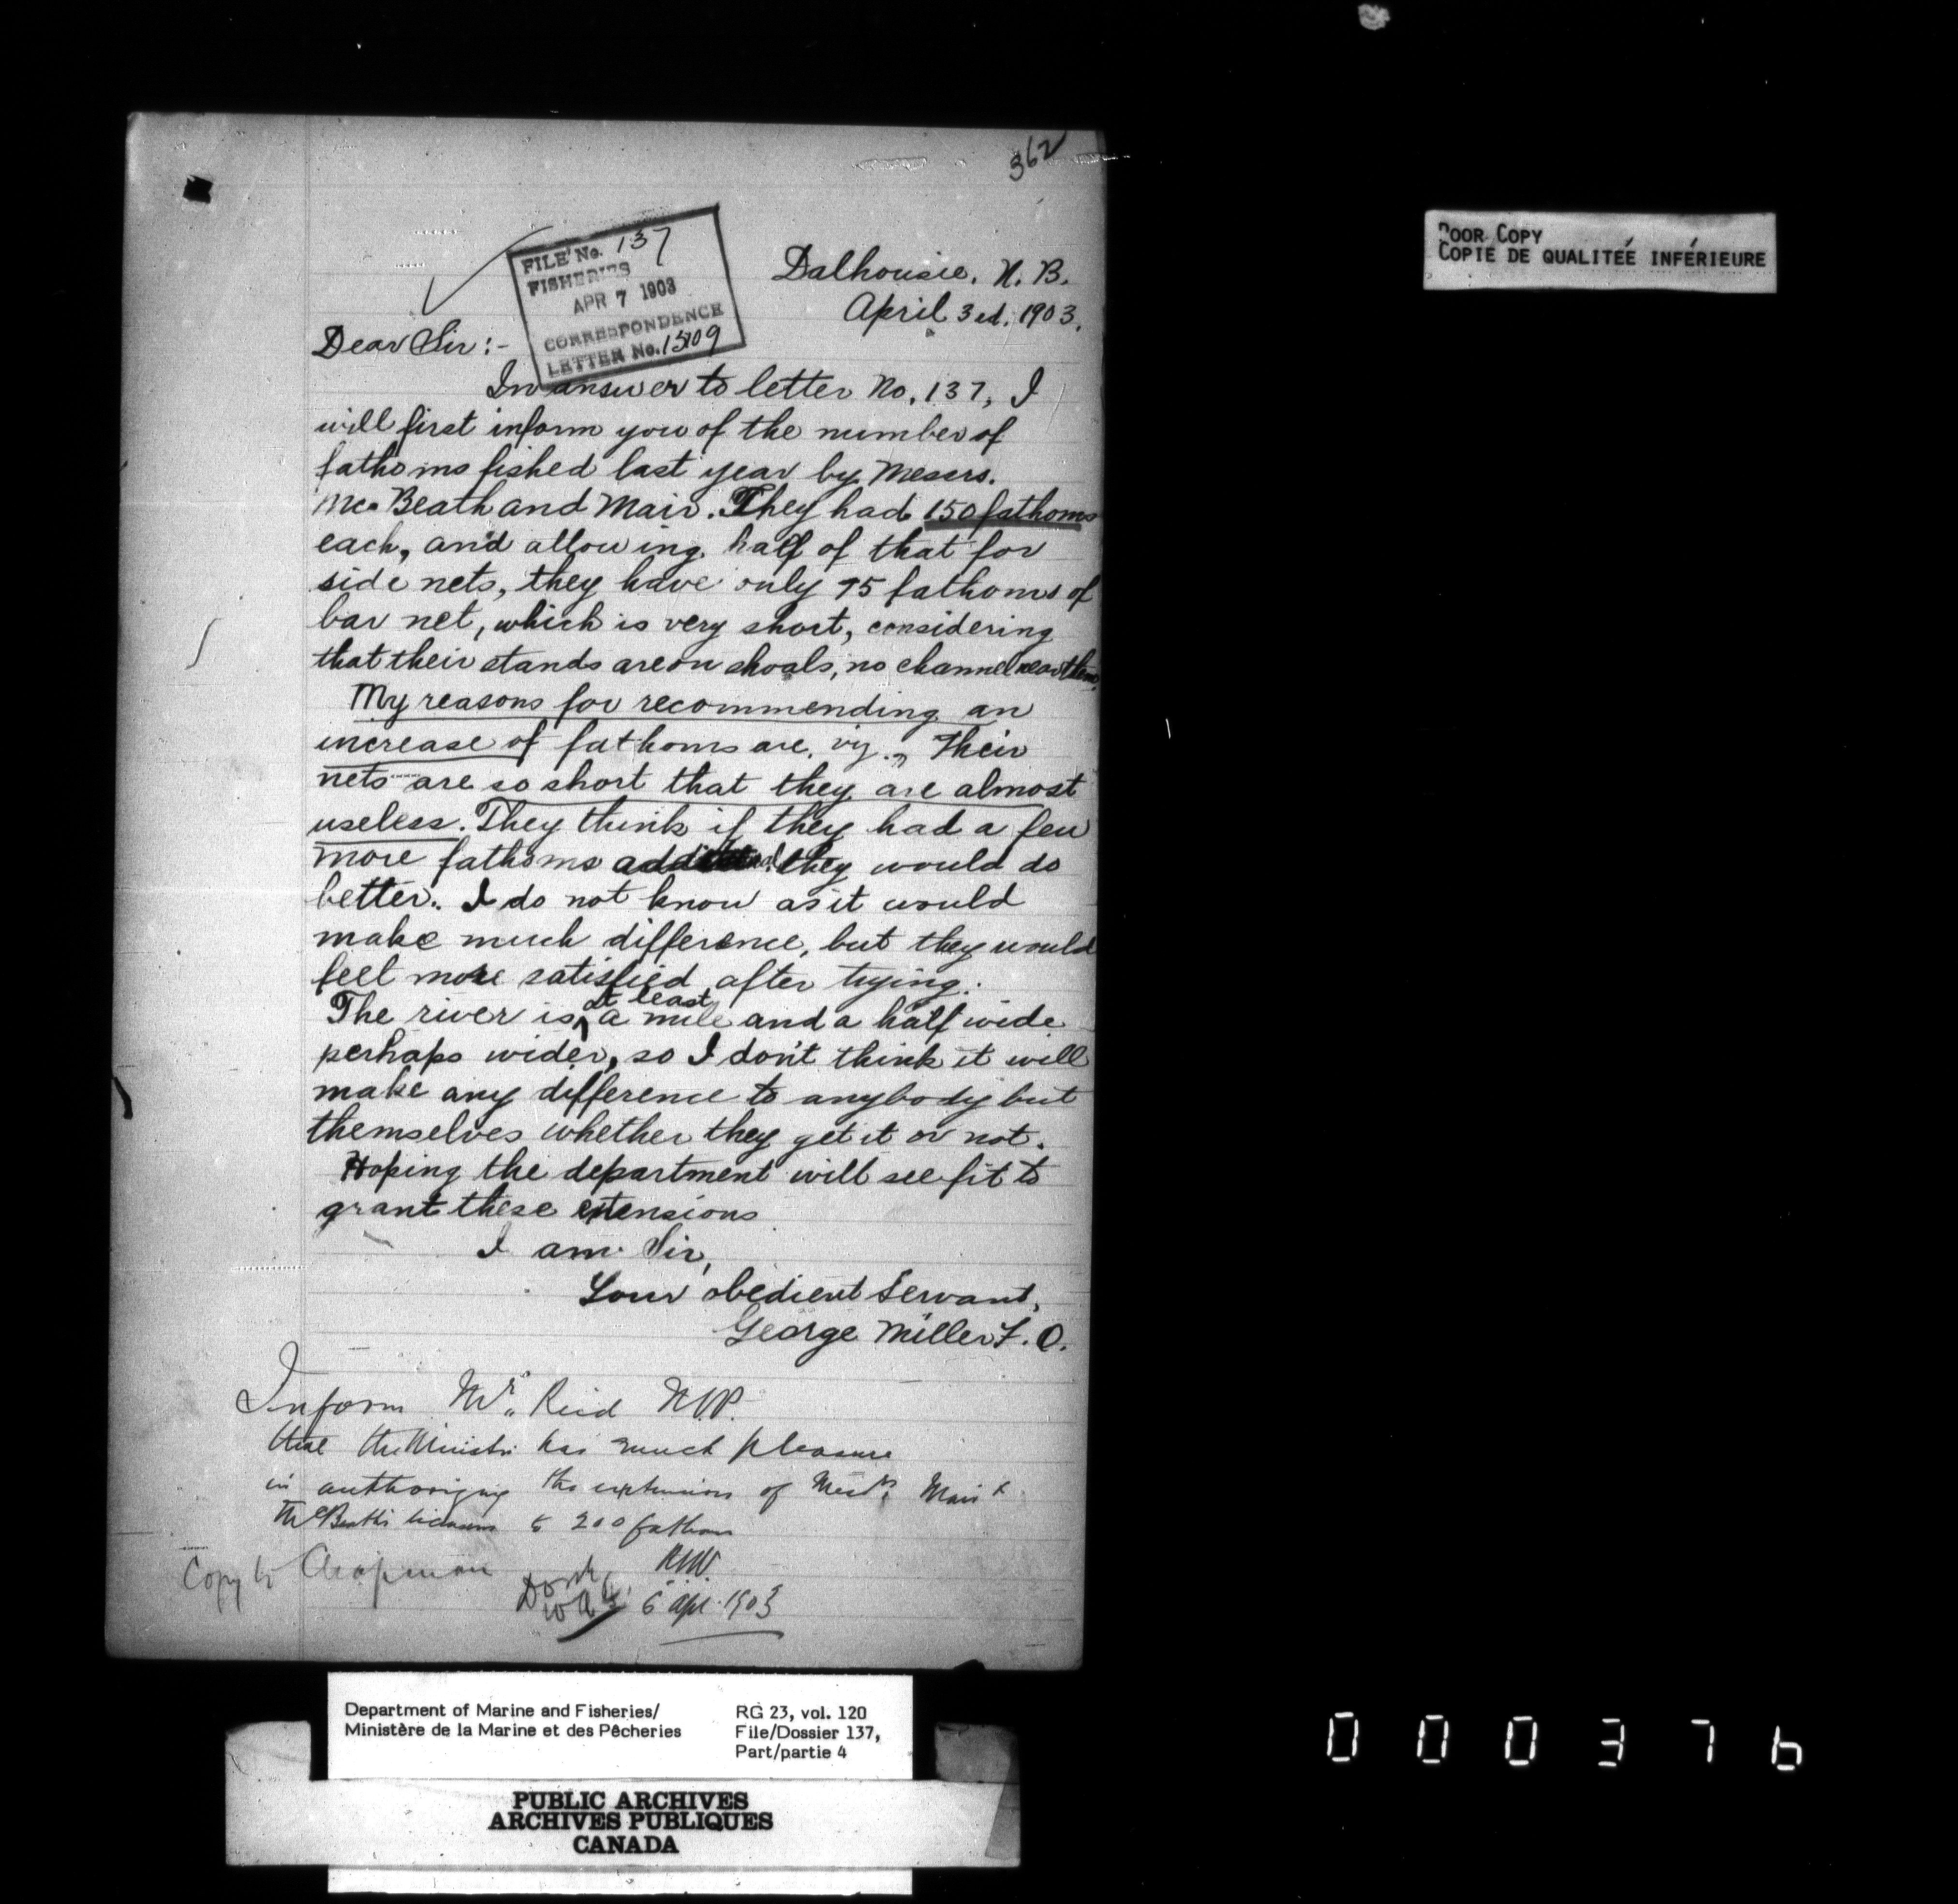 362
FILE No. 137
FISHERIES
APR 7 1903
CORRESPONDENCE
LETTER No. 15109
Dalhousie, N. B.
April 3ed. 1903.
Dear Sir:-
In answer to letter No. 137, I
will first inform you of the number of
fathoms fished last year by Messrs.
McBeath and Mair. They had 150 fathoms
each, and allowing half of that for
side nets, they have only 75 fathoms of
bar net, which is very short, considering
that their stands are on shoals, no channel near them.
My reasons for recommending an
increase of fathoms are, viz., Their
nets are so short that they are almost
useless. They think if they had a few
more fathoms they would do
better. I do not know as it would
make much difference, but they would
feel more satisfied after trying.
The river is at least a mile and a half wide
perhaps wider, so I don't think it will
make any difference to anybody but
themselves whether they get it or not.
Hoping the department will see fit to
grant these extensions
I am Sir,
Your obedient Servant,
George Miller F. O.
Inform Mr. Reid M.P.
that the Minister has much pleasure
in authorizing the extension of Messrs Mair &
McBeath's licenses to 200 fathoms
Copy to Chapman
6 Apl. 1903
POOR COPY
COPIE DE QUALITEÉ INFÉRIEURE
Department of Marine and Fisheries/
Ministère de la Marine et des Pêcheries
RG 23, vol. 120
File/Dossier 137,
Part/partie 4
PUBLIC ARCHIVES
ARCHIVES PUBLIQUES
CANADA
000376